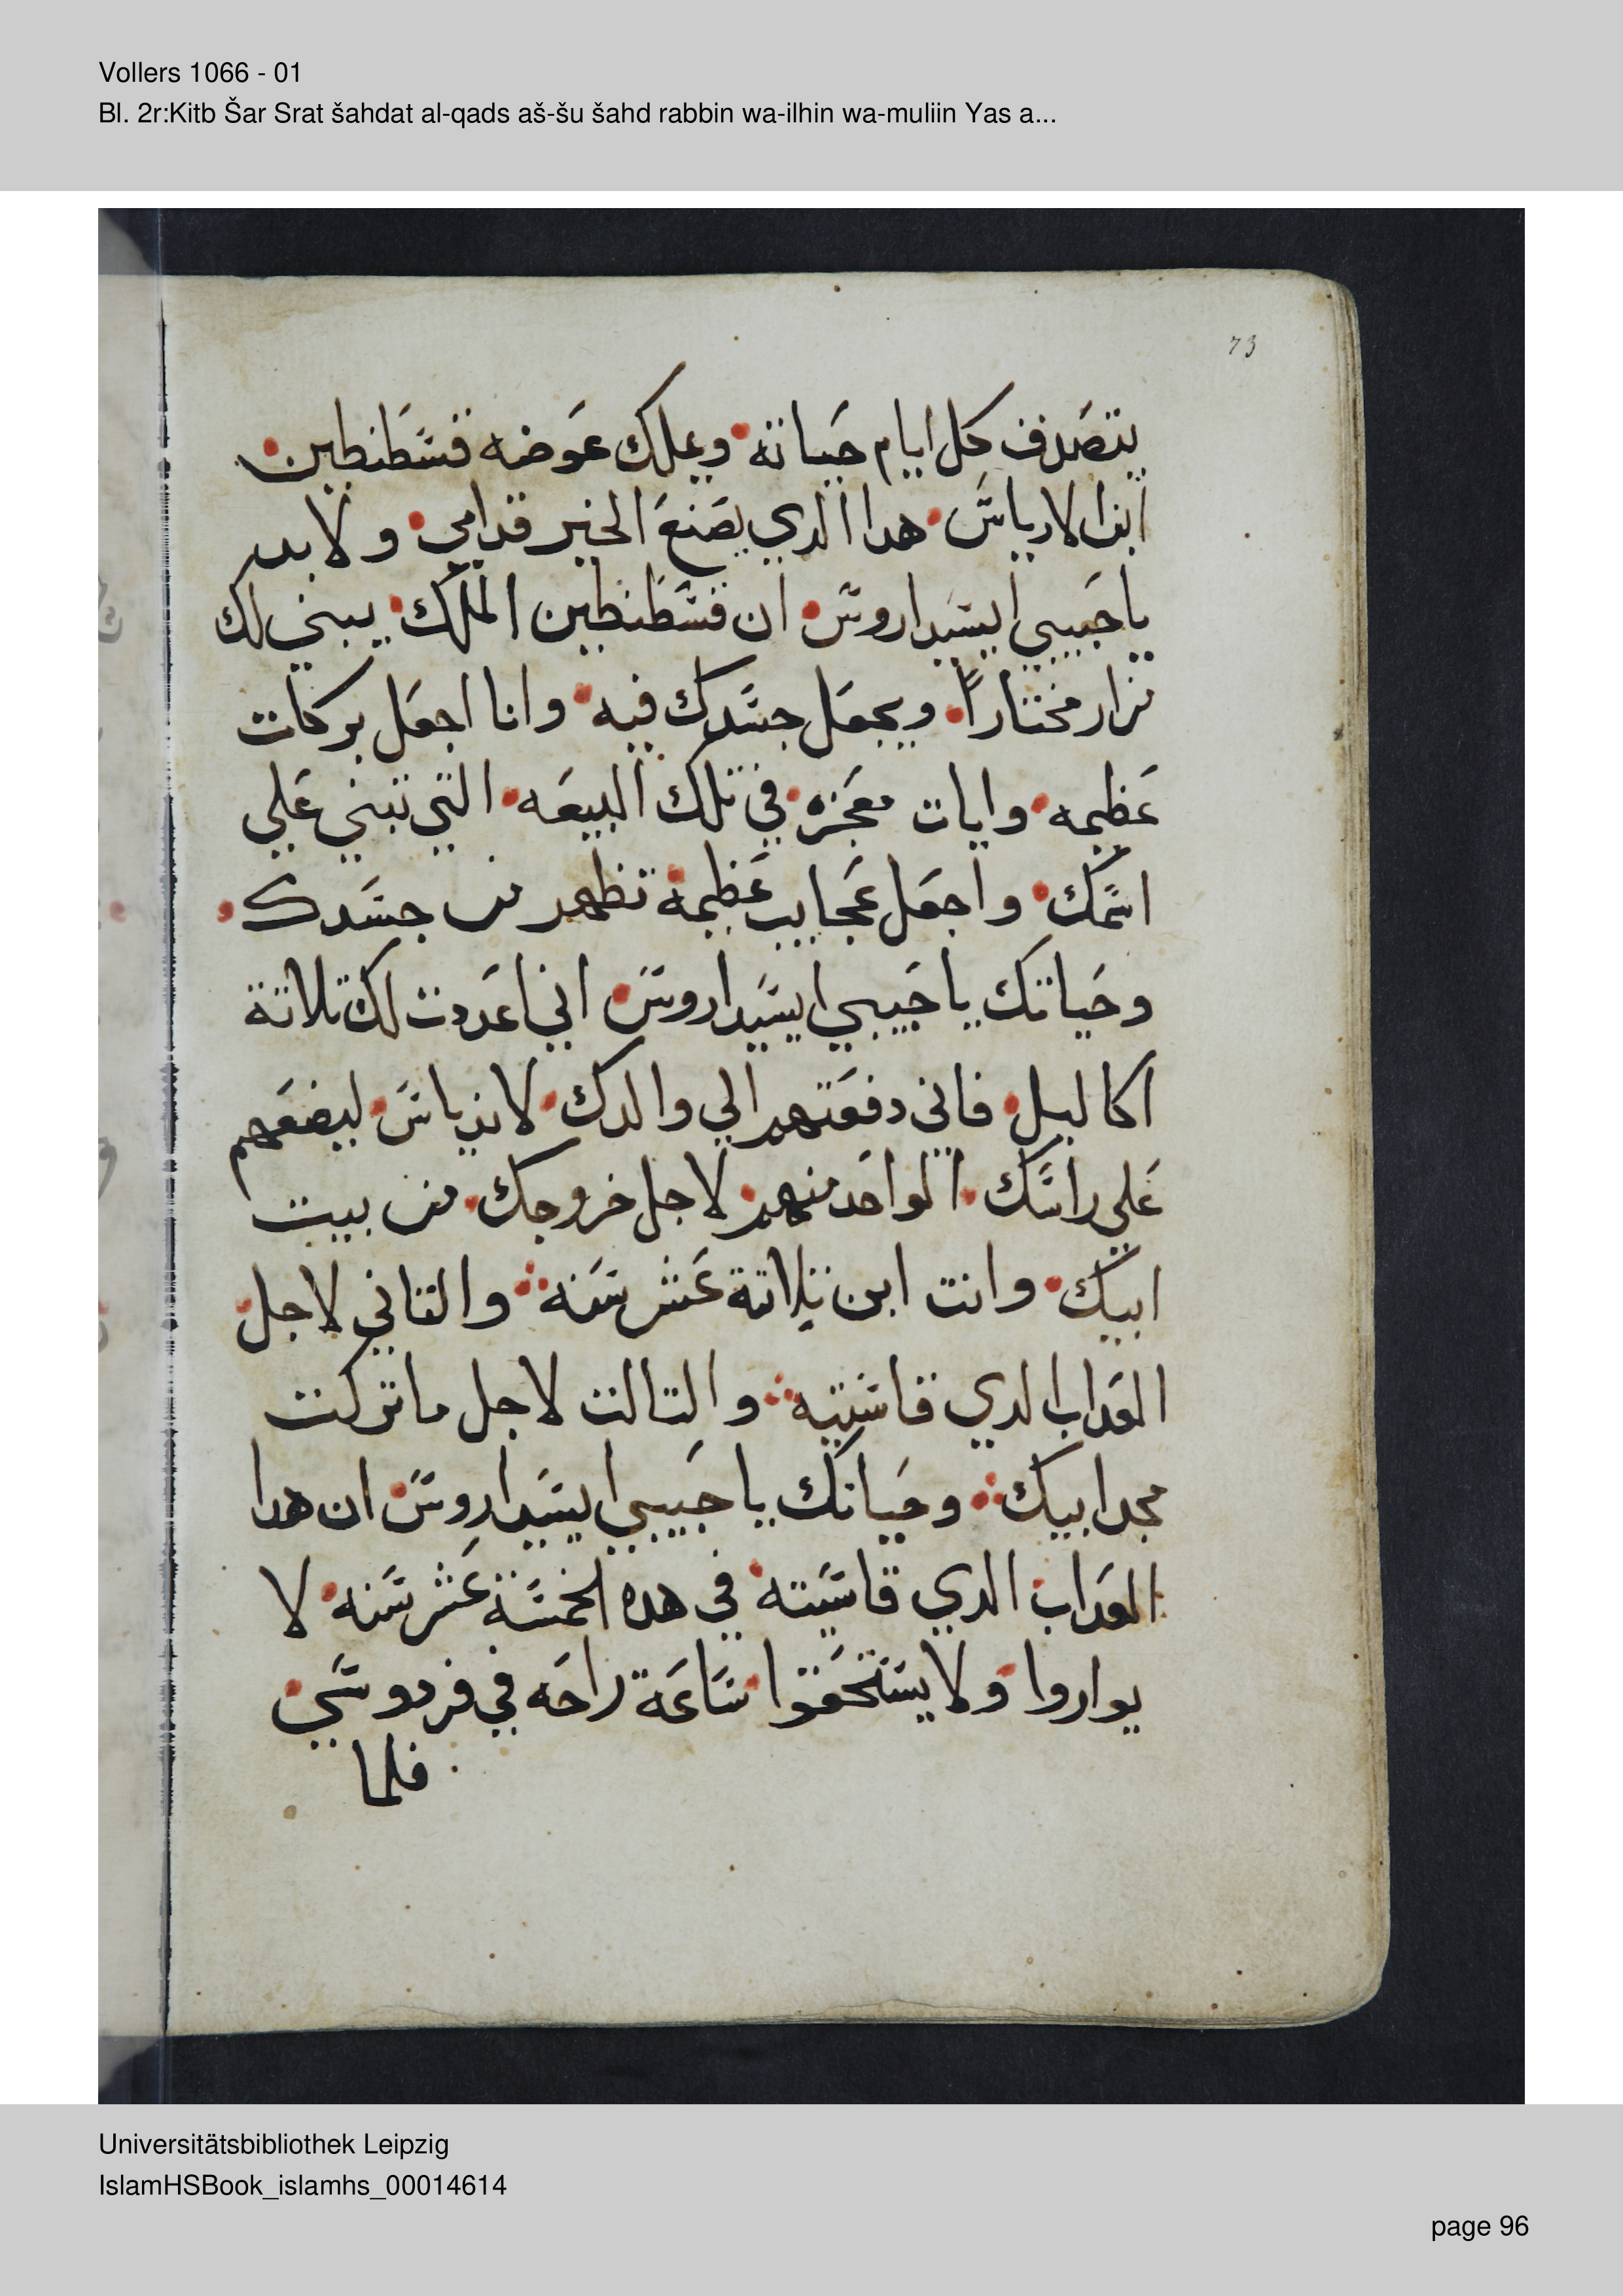 Vollers 1066 - 01
Bl. 2r:Kitb Šar Srat šahdat al-qads aš-šu šahd rabbin wa-ilhin wa-muliin Yas a...
73
يتصدف كل ايام حياته ويملك عوضه قسطنطين
ابن الارياس هدا الدي يصنع الخير قدامي ولابد
يا حبيبي ايسيداروس ان قسطنطين الملك يبني لك
مختاراً ويجعل جسدك فيه وانا اجعل بركات
عظيمه وايات معجزه في تلك البيعه التي تبني علي
اسمك واجعل عجايب عظيمه تظهر من جسدك
وحياتك يا حبيبي ايسيداروس اني اعددت لك تلاتة
اكاليل فاني دفعتهم الي والدك لاندياس ليضعهم
علي راسك الواحد منهم لاجل خروجك من بيت
ابيك وانت ابن تلاتة عشر سنه والتاني لاجل
العداب الدي قاسيته والتالت لاجل ما تركت
مجد ابيك وحياتك يا حبيبي ايسيداروس ان هدا
العداب الدي قاسيته في هده الخمسة عشر سنه لا
يواروا ولا يستحقوا ساعة راحه في فردوسي
فلما
Universitätsbibliothek Leipzig
IslamHSBook_islamhs_00014614
page 96